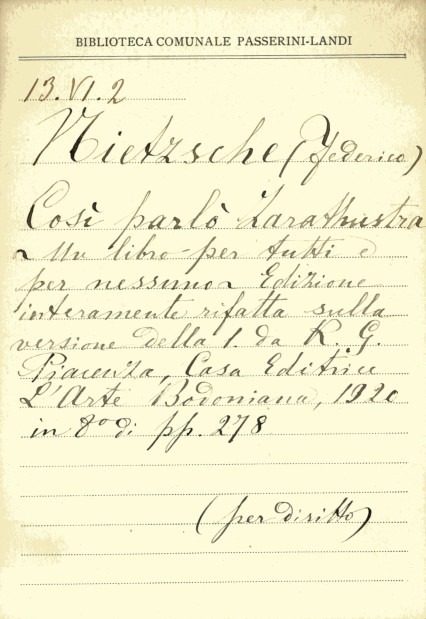 BIBLIOTECA COMUNALE PASSERINI-LANDI
13.VI.2
Nietzsche (Federico)
Così parlò Zarathustra
~ Un libro per tutti e
per nessuno ~ Edizione
interamente rifatta sulla
versione della 1. da R. G.
Piacenza, Casa Editrice
L'Arte Bodoniana, 1920
in 8º di pp. 278
(per diritto)